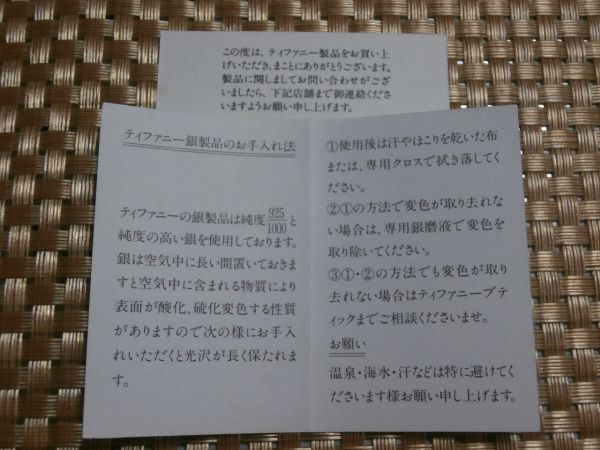 この度は、ティファニー製品をお買い上
げいただき、まことにありがとうございます。
製品に関しましてお問い合わせがござ
いましたら、下記店舗まで御連絡くださ
いますようお願い申し上げます。
ティファニー銀製品のお手入れ法
ティファニーの銀製品は純度925/1000と
純度の高い銀を使用しております。
銀は空気中に長い間置いておきま
すと空気中に含まれる物質により
表面が酸化、硫化変色する性質
がありますので次の様にお手入
れいただくと光沢が長く保たれま
す。
①使用後は汗やほこりを乾いた布
または、専用クロスで拭き落してく
ださい。
②①の方法で変色が取り去れな
い場合は、専用銀磨液で変色を
取り除いてください。
③①・②の方法でも変色が取り
去れない場合はティファニーブテ
ィックまでご相談くださいませ。
お願い
温泉・海水・汗などは特に避けてく
ださいます様お願い申し上げます。